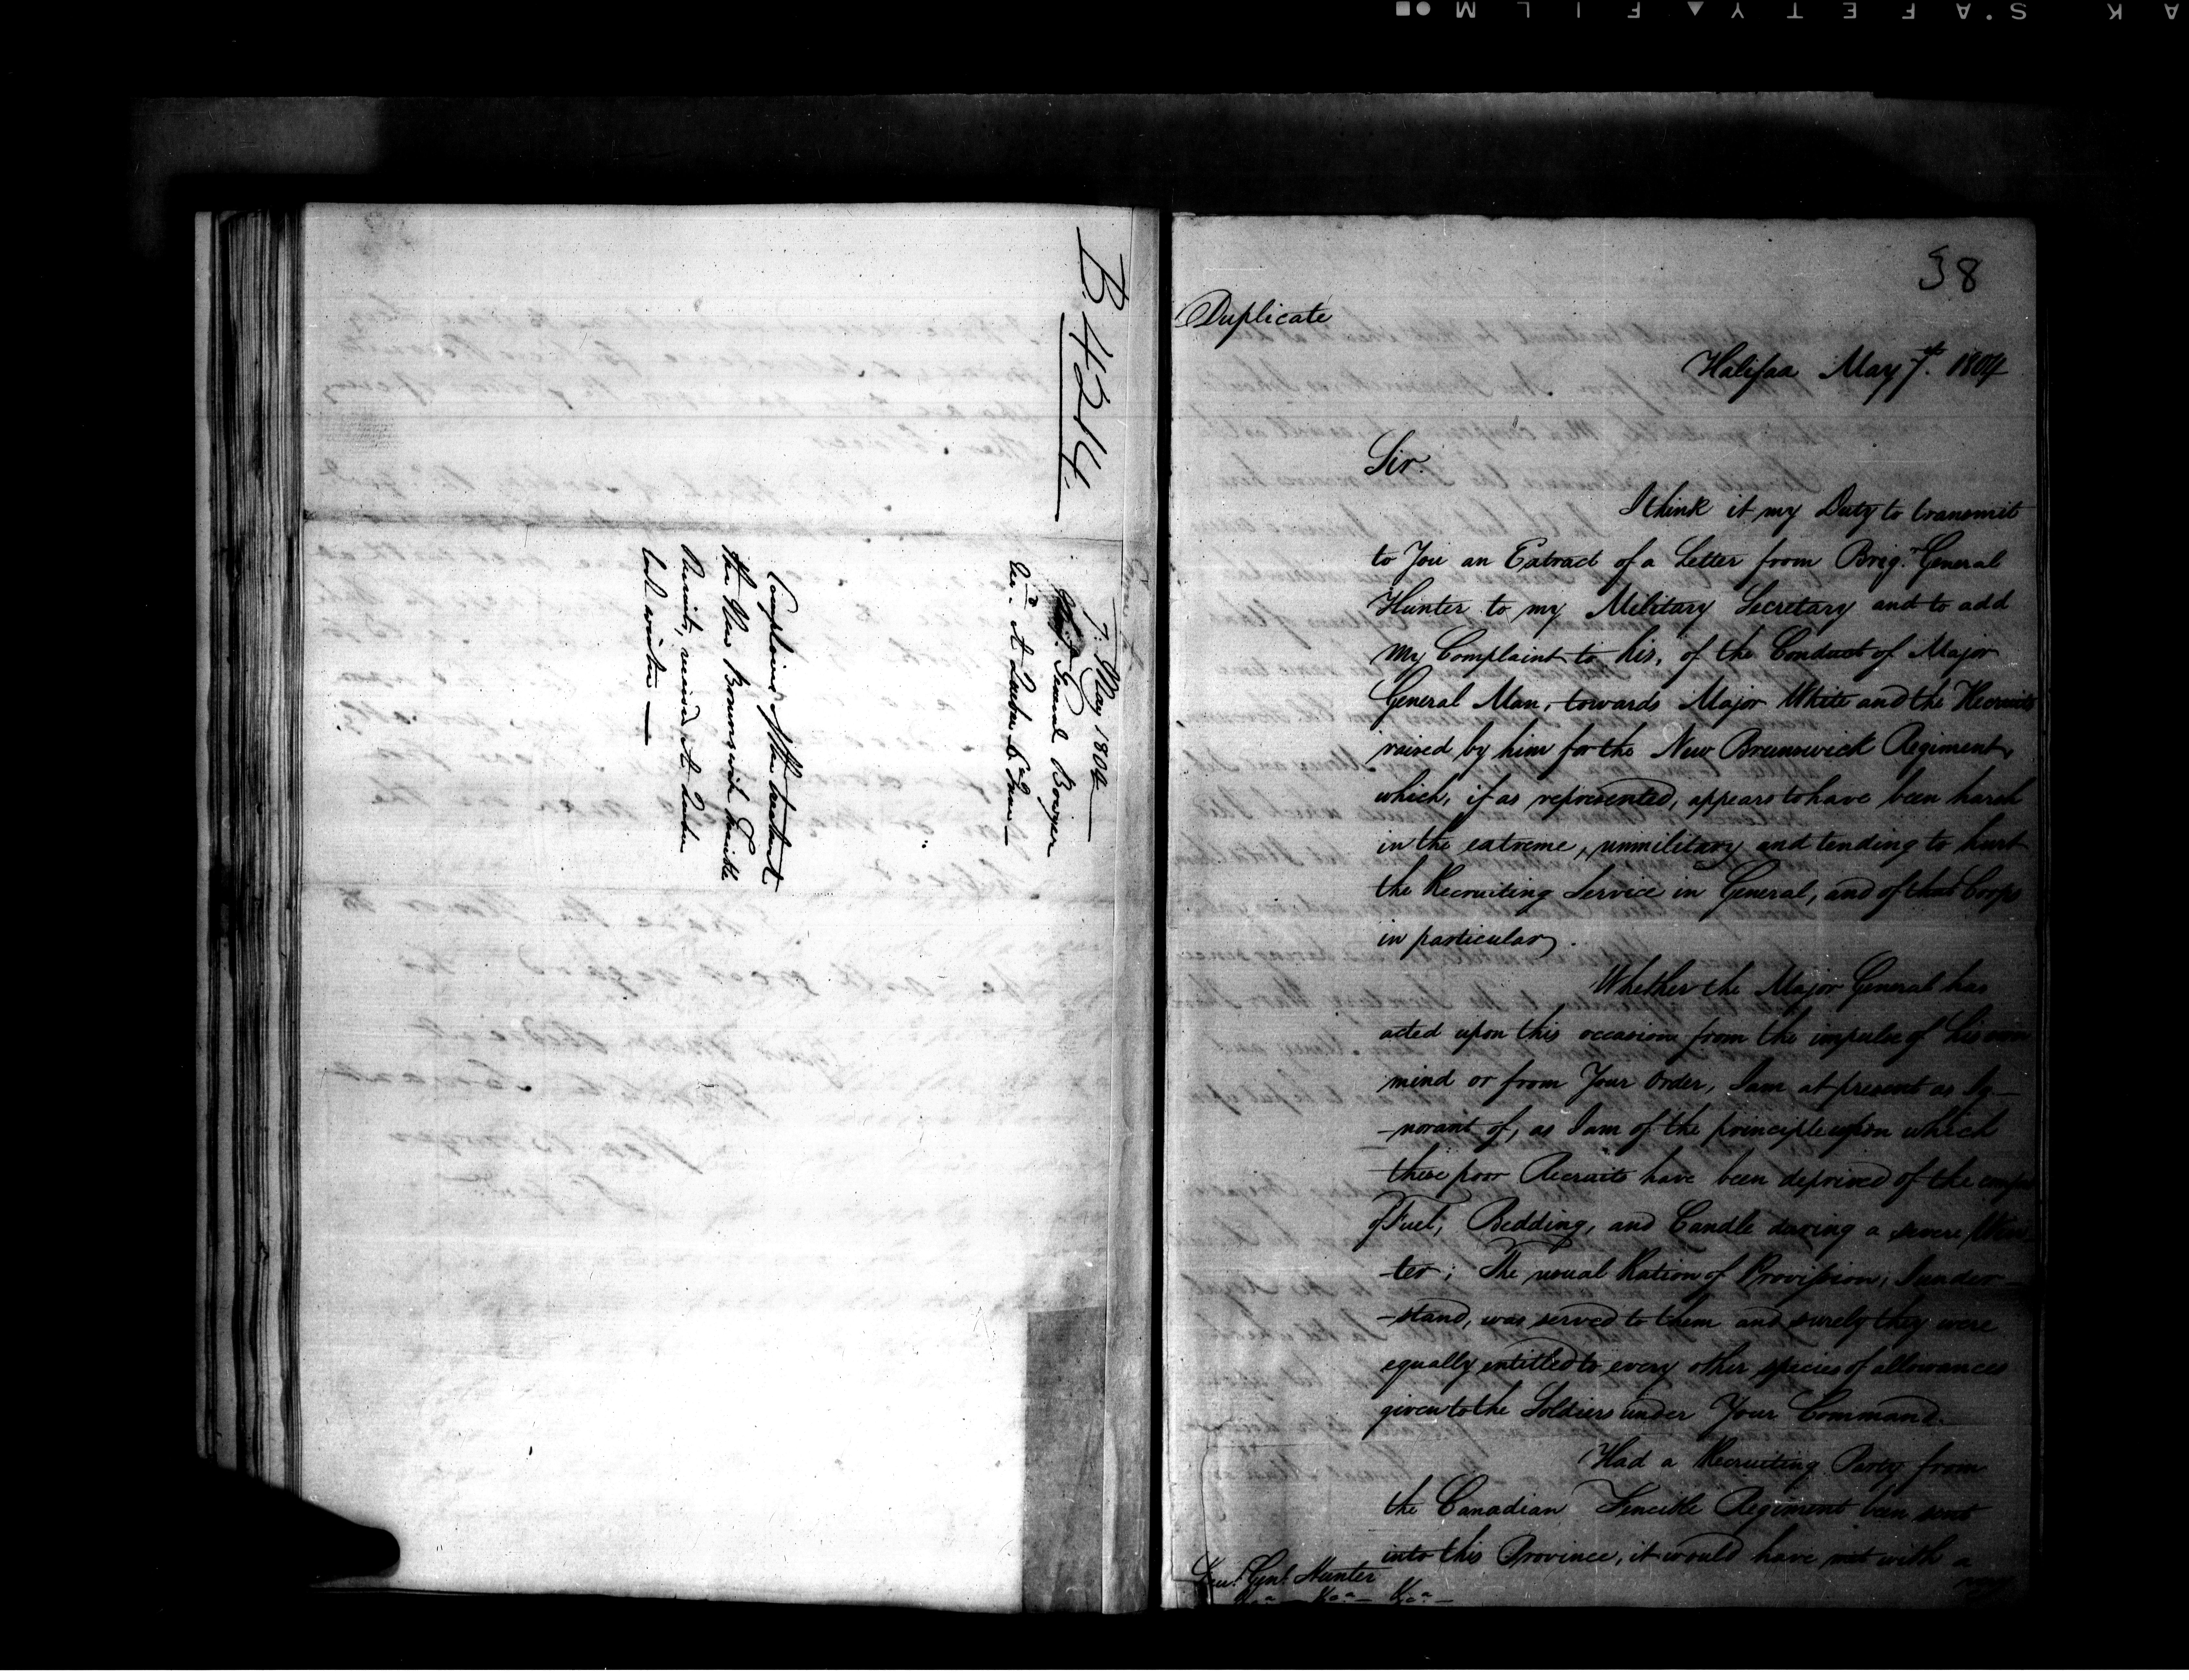 B. 4214.
7. May 1804
General Bowyer
At Quebec 6 June
Complains of the treatment
the New Brunswick Fencible
Recruits, received At Quebec
last winter —
38
Duplicate
Halifax May 7th. 1804
Sir.
I think it my Duty to transmit
to You an Extract of a Letter from Brig. General
Hunter to my Military Secretary and to add
my Complaint to his, of the Conduct of Major
General Man, towards Major White and the Recruits
raised by him for the New Brunswick Regiment,
which, if as represented, appears to have been harsh
in the extreme, unmilitary and tending to hurt
the Recruiting Service in General, and of that Corps
in particular.
Whether the Major General has
acted upon this occasion from the impulse of his own
mind or from Your Order, I am at present as Ig-
-norant of, as I am of the principle upon which
these poor Recruits have been deprived of the
of Fuel, Bedding, and Candle during a severe Win-
-ter; The usual Ration of Provision, I under-
-stand, was served to them and surely they were
equally entitled to every other species of allowances
given to the Soldiers under Your Command.
Had a Recruiting Party from
the Canadian Fencible Regiment been sent
into this Province, it would have met with a
Lieut. Genl. Hunter
&ca — &ca — &ca —